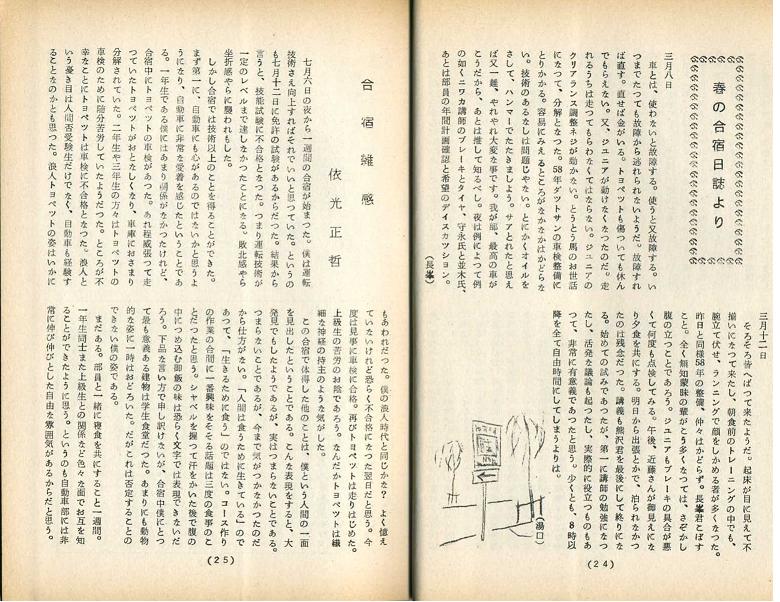 春の合宿日誌より
三月八日
車とは、使わないと故障する。使うと又故障する。い
つまでたつても故障から逃れられないようだ。故障すれ
ば直す。直せば金がいる。トヨペットも傷ついても休ん
でもらえない。又、ジュニアが動けなくなつたのだ。走
れるうちは走つてもらわなくてはならない。ジュニアの
クリアランス調整ネジが動かない。とうとう馬のお世話
になつて、分解となつた。58年ダツトサンの車検整備に
とりかかる。容易にみえるところがなかなかはかどらな
い。技術のあるなしは問題じやない。とにかくオイルを
さして、ハンマーでたたきましよう。サアとれたと思え
ば又一難、やれやれ大変な事です。我が部、最高の車が
こうだから、あとは推して知るべし。夜は例によつて例
の如くニワカ講師のブレーキとタイヤ、守永氏と並木氏、
あとは部員の年間計画確認と希望のデイスカツシヨン。
(長峯)
三月十二日
そろそろ皆へばつて来たようだ。起床が目に見えて不
揃いになつて来たし、朝食前のトレーニングの中でも、
腕立て伏せ、ランニングで顔をしかめる者が多くなつた。
昨日と同様58年の整備、仲々はかどらず。長峯君こぼす
こと。全く無知蒙昧の輩がこう多くなつては、さぞかし
腹の立つことであろう。ジュニアもブレーキの具合が悪
くて何度も点検してみる。午後、近藤さんが御見えにな
り夕食を共にする。明日から出張とかで、泊られなかつ
たのは残念だつた。講義も熊沢君を最後にして終りにな
る。始めての試みであつたが、第一に講師の勉強になつ
たし、活発な議論も起つたし、実際的に役立つものもあ
つて、非常に有意義であつたと思う。少くとも、8時以
降を全て自由時間にしてしまうよりは。
(湯口)
(24)
合宿雑感
依光正哲
七月六日の夜から一週間の合宿が始まつた。僕は運転
技術さえ向上すればそれでいいと思つていた。というの
も七月十二日に免許の試験があるからだつた。結果から
言うと、技能試験に不合格となつた。つまり運転技術が
一定のレベルまで達しなかつたことになる。敗北感やら
坐折感やらに襲われもした。
しかし合宿では技術以上のことを得ることができた。
まず第一に、自動車にも心があるのではないかと思うよ
うになり、自動車に非常な愛着を感じたということであ
る。一年生である僕にはあまり関係がなかつたけれど、
合宿中にトヨペットの車検があつた。あれ程威張つて走
つていたトヨペツトがおとなしくなり、車庫におさまり
分解されていた。二年生や三年生の方々はトヨペットの
車検のために随分苦労していたようだつた。ところが不
幸なことにトヨペツトは車検に不合格となつた。浪人と
いう憂き目は人間否受験生だけでなく、自動車も経験す
ることなのかとも思つた。浪人トヨペツトの姿はいかに
もあわれだつた。僕の浪人時代と同じかな? よく憶え
ていないけれど恐らく不合格になつた翌日だと思う。今
度は見事に車検に合格。再びトヨペットは走りはじめた。
上級生の苦労のお陰であろう。なんだかトヨペットは繊
細な神経の持主のような気がした。
この合宿で体得した他のことは、僕という人間の一面
を見出したということである。こんな表現をすると、大
発見でもしたようであるが、実はつまらないことである。
つまらないことであるが、今まで気がつかなかつたのだ
から仕方がない。「人間は食うために生きている」ので
あつて、「生きるために食う」のではない。コース作り
の作業の合間に一番興味をそそる話題は三度の食事のこ
とだつたと思う。シヤベルを握つて汗をかいた後で腹の
中につめ込む御飯の味は恐らく文字では表現できないだ
ろう。下品な言い方で申し訳けないが、合宿中僕にとつ
て最も意義ある建物は学生食堂だつた。あまりにも動物
的な姿に一時はおどろいた。だがこれは否定することの
できない僕の姿である。
まだある。部員と一緒に寝食を共にすること一週間。
一年生同士また上級生との関係など色々な面でお互を知
ることができたように思う。というのも自動車部には非
常に伸び伸びとした自由な雰囲気があるからだと思う。
(25)